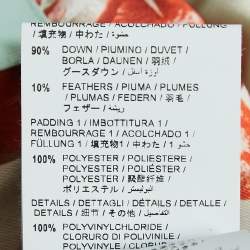 REMBOURRAGE / ACOLCHADO / FÜLLUNG
/ 填充物 / 中わた / حشوة /
90% DOWN / PIUMINO / DUVET /
BORLA / DAUNEN / 羽绒 /
グースダウン / اوزة اسفل /
10% FEATHERS / PIUMA / PLUMES
/ PLUMAS / FEDERN / 羽毛 /
フェザー / ريشة /
PADDING 1 / IMBOTTITURA 1 /
REMBOURRAGE 1 / ACOLCHADO 1 /
FÜLLUNG 1 / 填充物1 / 中わた1 / حشوة 1
100% POLYESTER / POLIESTERE /
POLYESTER / POLIÉSTER /
POLYESTER / 聚酯纤维 /
ポリエステル / البوليستر /
DETAILS / DETTAGLI / DÉTAILS / DETALLE /
DETAILS / 细节 / その他 / تفاصيل /
100% POLYVINYLCHLORIDE /
CLORURO DI POLIVINILE /
POLYVINYLE / CLORURO